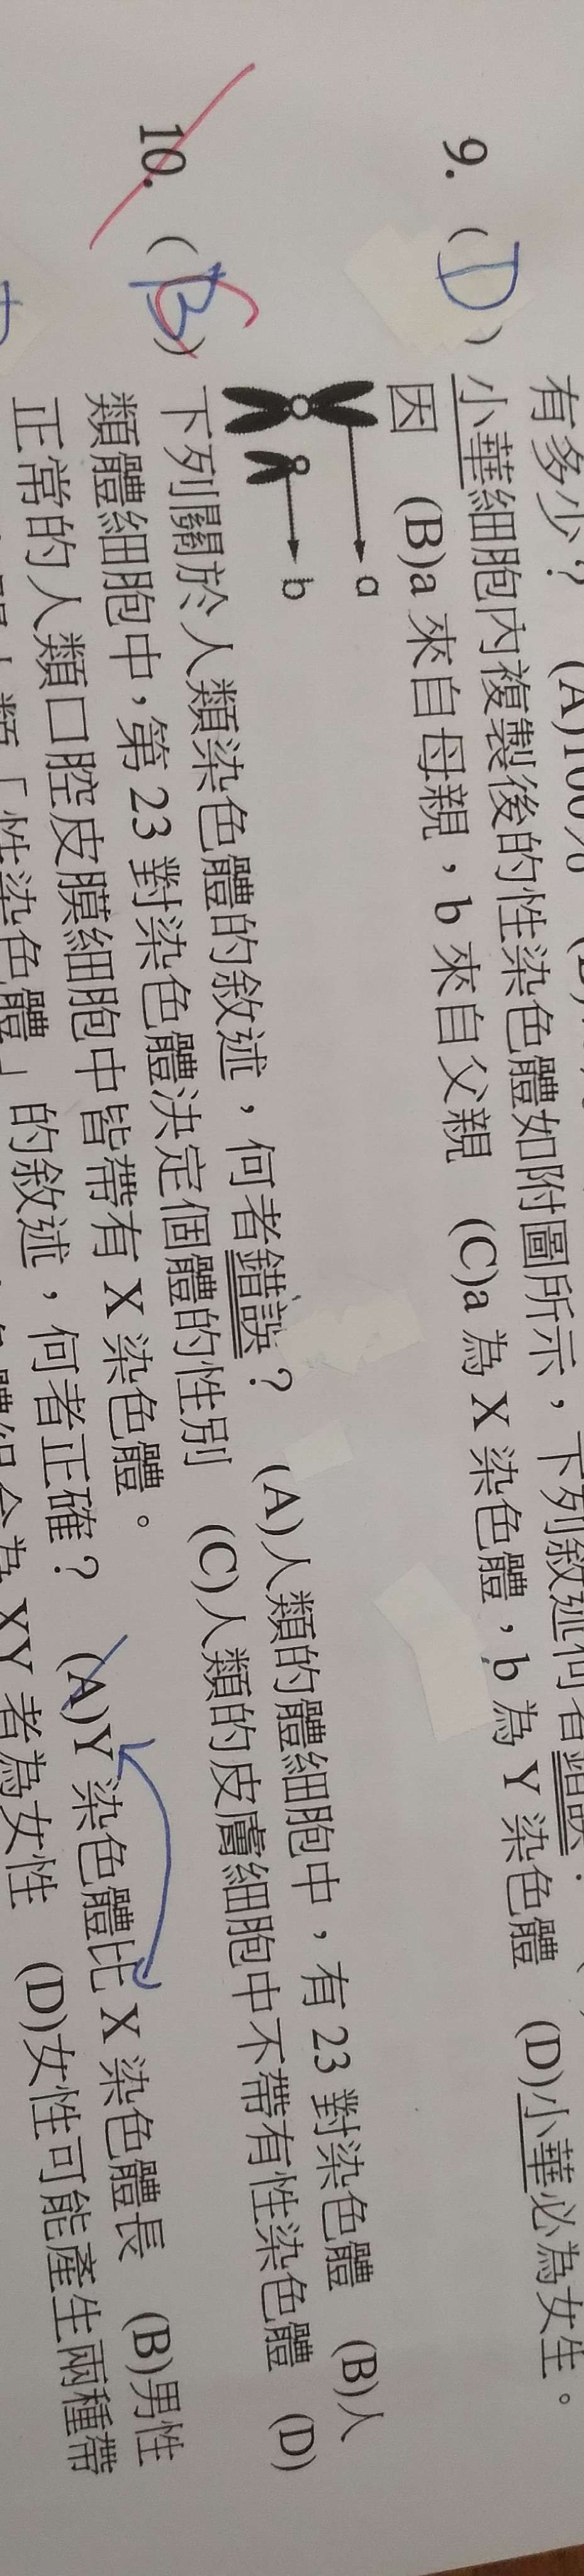 有多少？ (A)100%
9. ( D ) 小華細胞內複製後的性染色體如附圖所示，下列敘述何者錯誤
因 (B)a 來自母親，b 來自父親 (C)a 為 X 染色體，b 為 Y 染色體 (D)小華必為女生。
a
b
10. ( B ) 下列關於人類染色體的敘述，何者錯誤？ (A)人類的體細胞中，有 23 對染色體 (B)人
類體細胞中，第 23 對染色體決定個體的性別 (C)人類的皮膚細胞中不帶有性染色體 (D)
正常的人類口腔皮膜細胞中皆帶有 X 染色體。
「性染色體」的敘述，何者正確？ (A)Y 染色體比 X 染色體長 (B)男性
XY 者為女性 (D)女性可能產生兩種帶